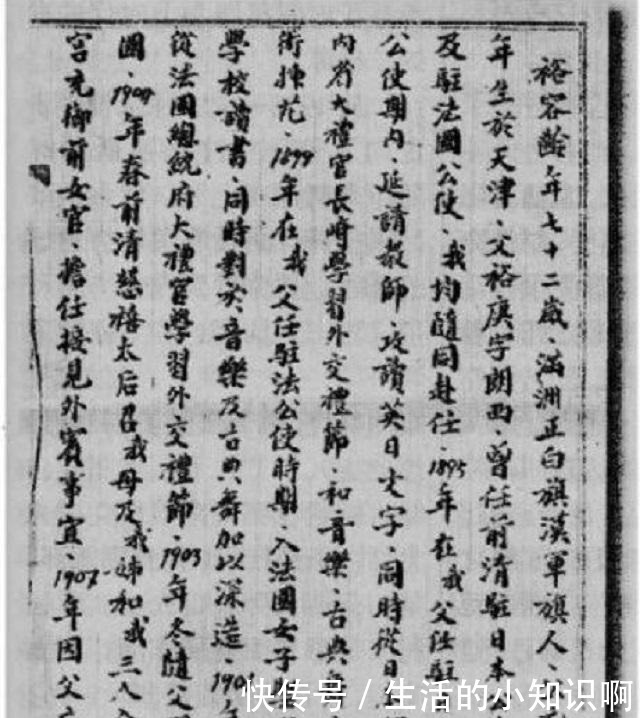 裕容齡年七十二歲、滿洲正白旗漢軍旗人、
年生於天津、父裕庚字朗西、曾任前清駐日本
及駐法國公使、我均隨同赴任、1895年在我父任駐
公使期內、延請教師、攻讀英日文字、同時從日
內省大禮官長崎學習外交禮節、和音樂、古典
術揀花、1899年在我父任駐法公使時期、入法國女子
學校讀書、同時對於音樂及古典舞加以深造、190
從法國總統府大禮官學習外交禮節、1903年冬隨父
國、1904年春前清慈禧太后召我母及我姊和我三人入
宮充御前女官、擔任接見外賓事宜、1907年因父
快传号/生活的小知识啊